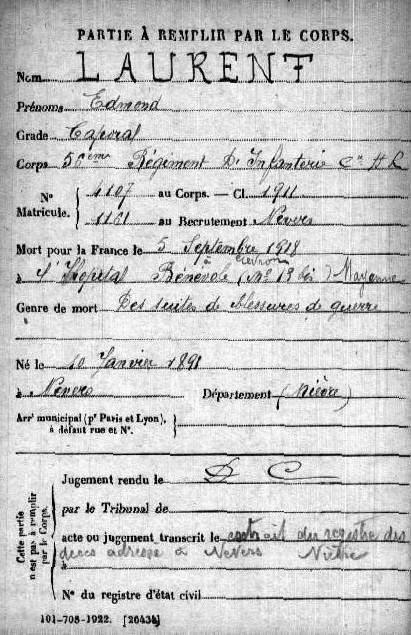 PARTIE À REMPLIR PAR LE CORPS.
Nom LAURENT
Prénoms Edmond
Grade Caporal
Corps 56eme Régiment D'Infanterie Cie H R
N° Matricule. 4107 au Corps. — Cl. 1911
1161 au Recrutement Nevers
Mort pour la France le 5 Septembre 1918
à l'Hopital Bénévole (No 19 bis) Mayenne
à
Genre de mort Des suites de blessures de guerre
Né le 10 Janvier 1891
à Nevers Département (Nièvre)
Arrt municipal (pr Paris et Lyon),
à défaut rue et N°.
Cette partie n'est pas à remplir par le Corps.
Jugement rendu le D C
par le Tribunal de
acte ou jugement transcrit le extrait du registre des
deces adressé à Nevers Nièvre
à
N° du registre d'état civil
101-708-1922. [26434]